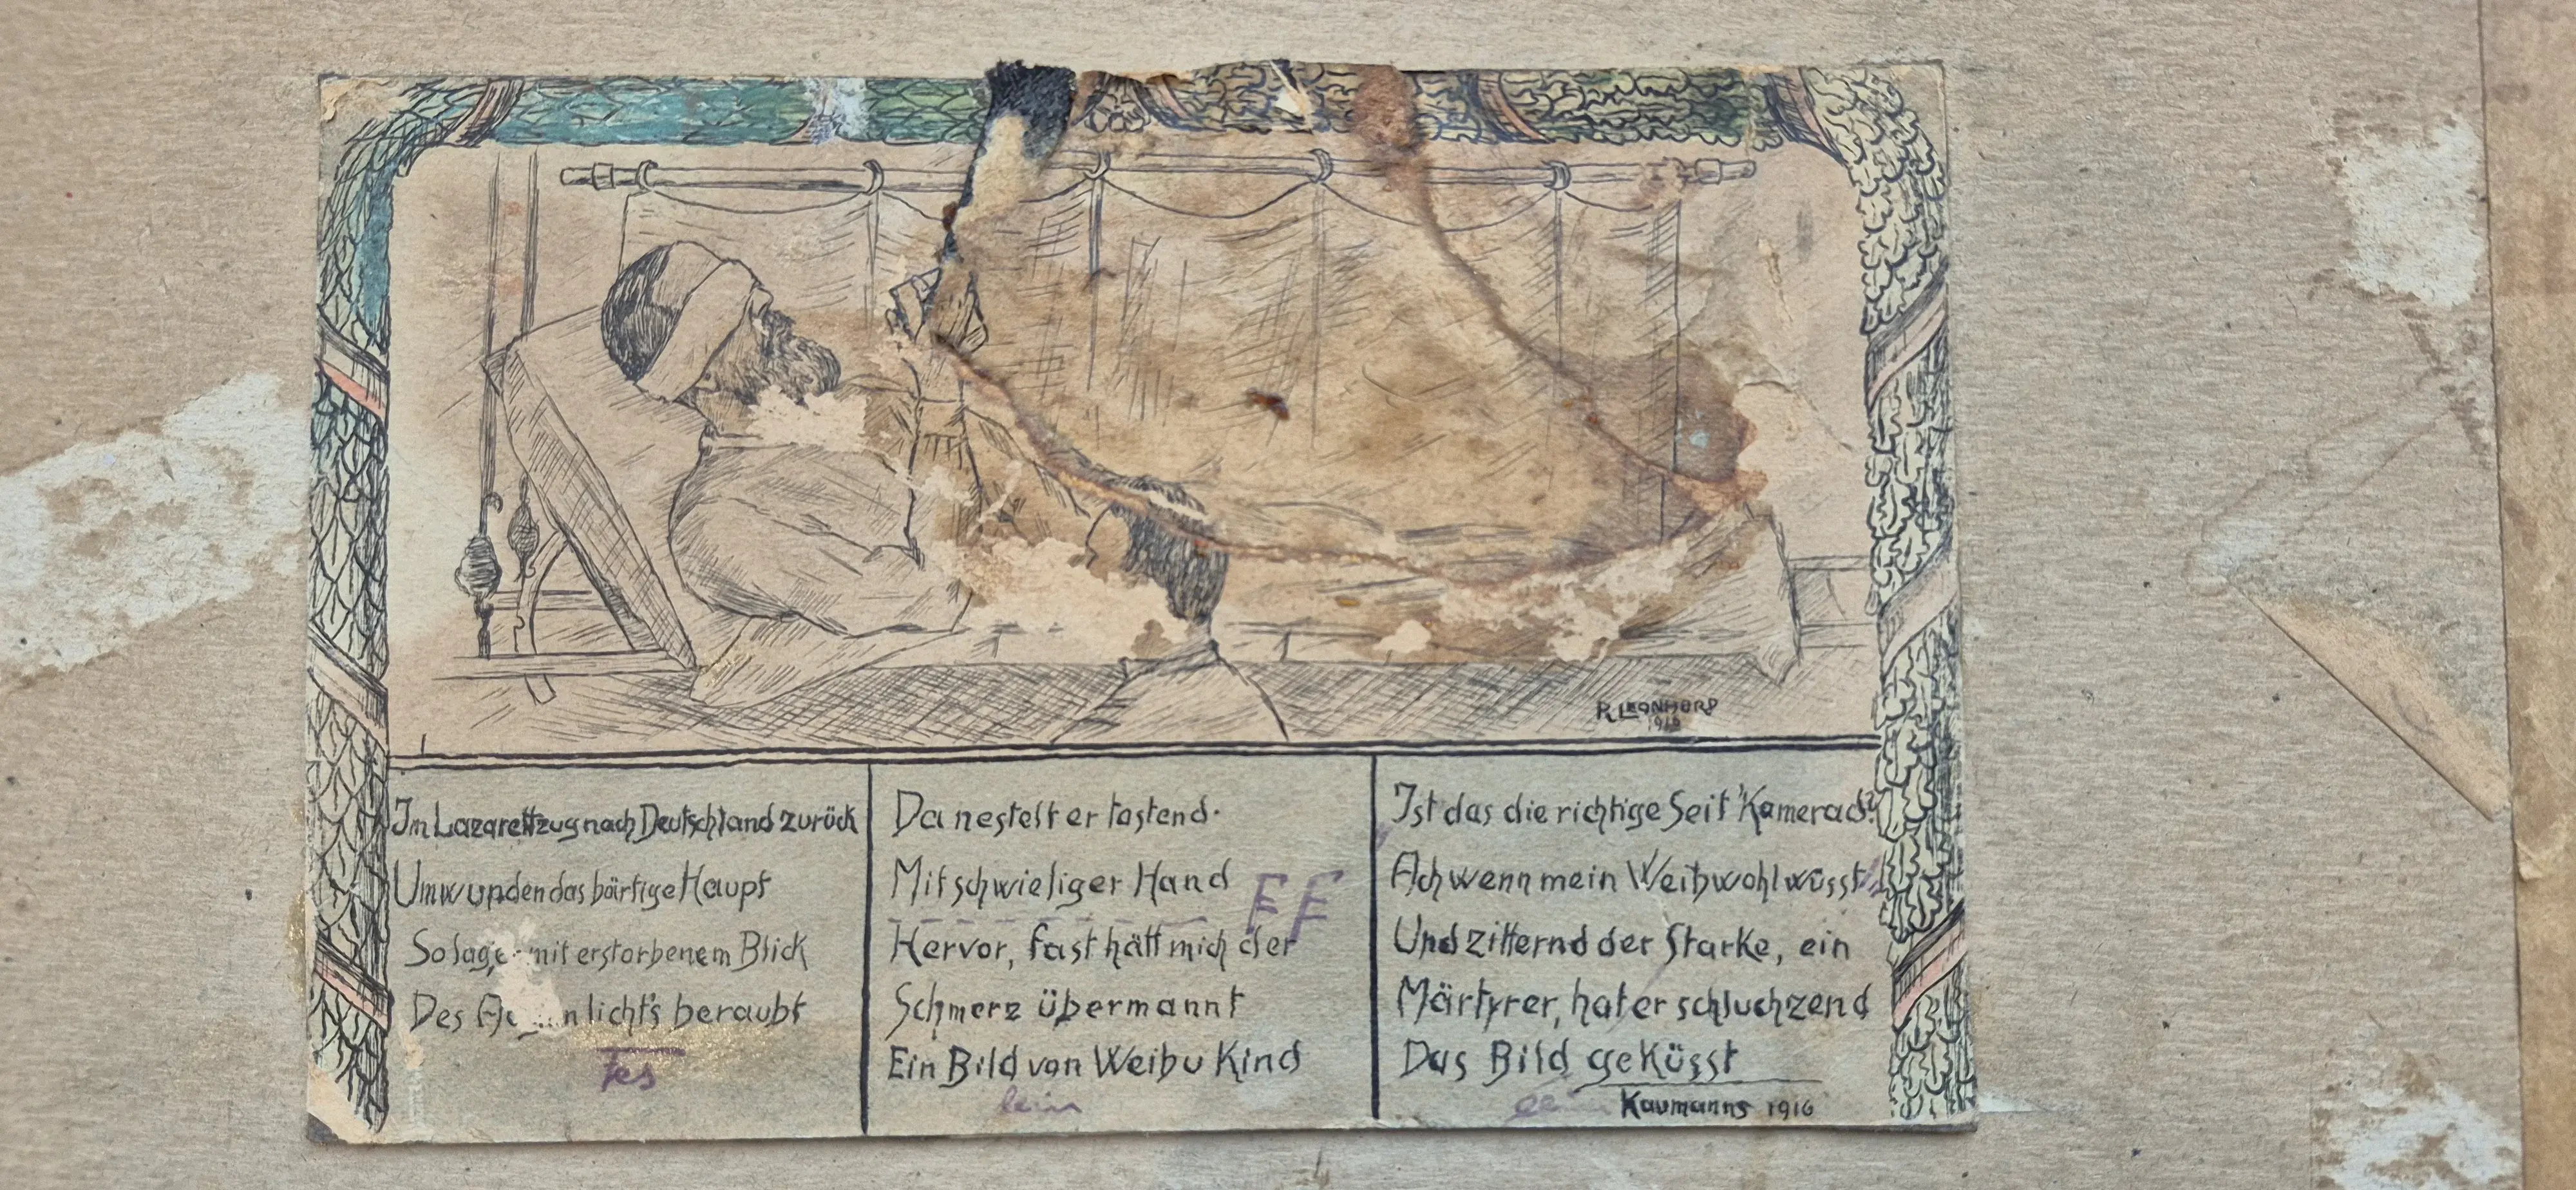 R. LEONHARD
1916
Im Lazarettzug nach Deutschland zurück
Umwunden das bärtige Haupt
So lag mit erstorbenem Blick
Des licht's beraubt
Da nestelt er tastend.
Mit schwieliger Hand
Hervor, fast hätt mich der
Schmerz übermannt
Ein Bild von Weib u Kind
Ist das die richtige Seit' Kamerad?
Ach wenn mein Weib wohl wüsst
Und zitternd der Starke, ein
Märtyrer, hat er schluchzend
Das Bild geküsst
Kaumanns 1916